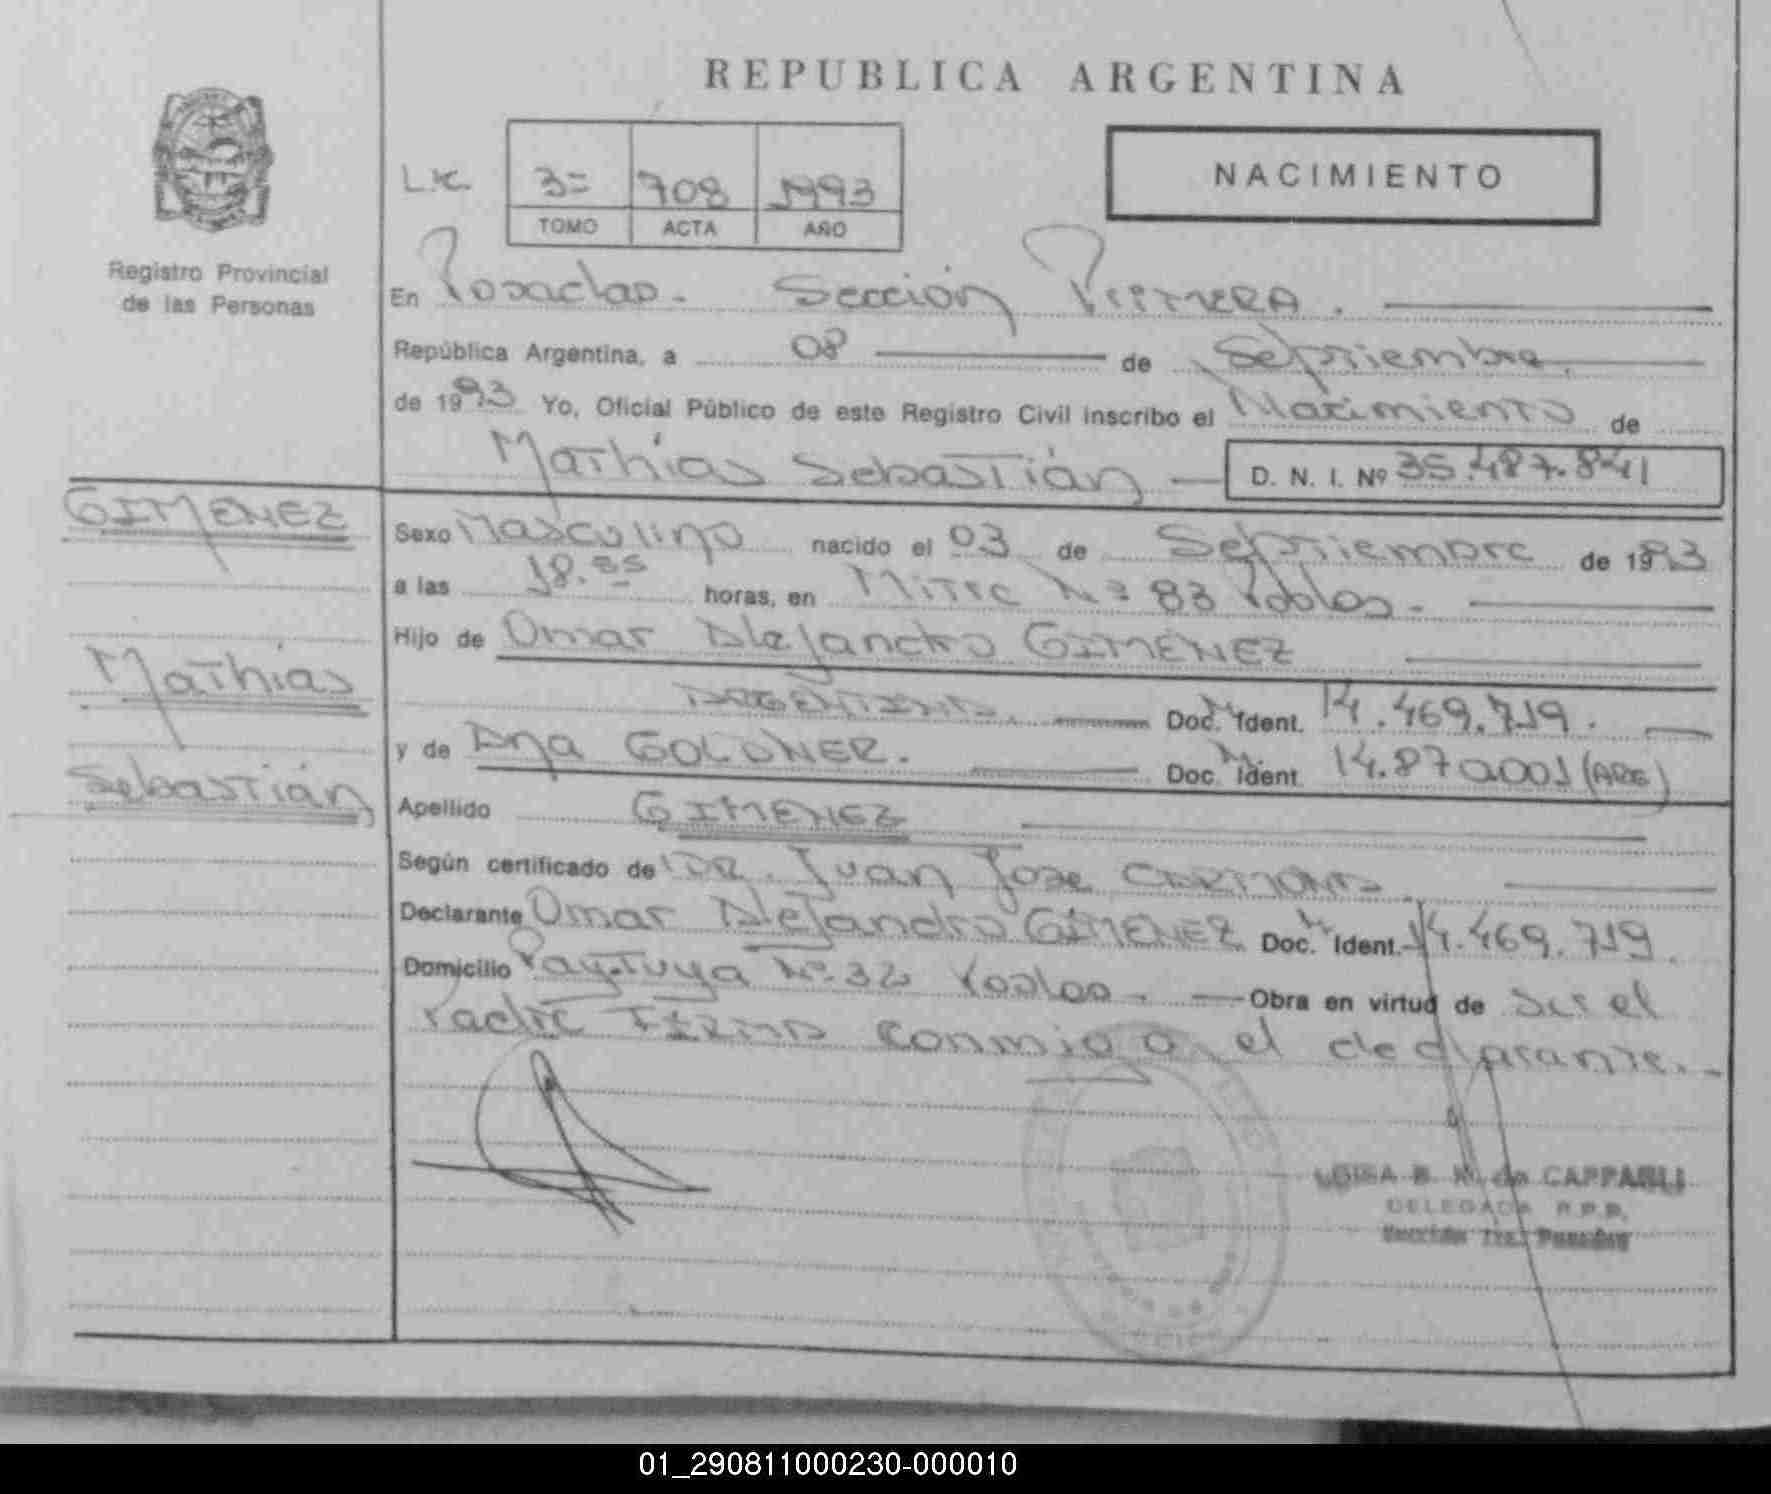 REPUBLICA ARGENTINA
NACIMIENTO
3= 708 1993
TOMO ACTA AÑO
Registro Provincial
de las Personas
En Posadas. Sección Primera.
República Argentina, a 08 de Septiembre
de 1993 Yo, Oficial Público de este Registro Civil inscribo el Nacimiento de
Mathias Sebastián D. N. I. Nº 35.487.841
GIMENEZ
Mathias
Sebastián
Sexo Masculino nacido el 03 de Septiembre de 1993
a las 18. horas, en Mitre Nº 83 Posdas.
Hijo de Omar Alejandro GIMENEZ
ARGENTINA. Doc. Ident. 14.469.719.
y de Ana GOLONER. Doc. Ident. 14.870.001 (ARG)
Apellido GIMENEZ
Según certificado de DR. Juan Jose CARMONA
Declarante Omar Alejandro GIMENEZ Doc. Ident. 14.469.719.
Domicilio Nº 32 Posdas. Obra en virtud de ser el
Padre FIRMA conmigo el declarante.
DE CAPPARLI
DELEGADA R.P.P.
01_290811000230-000010